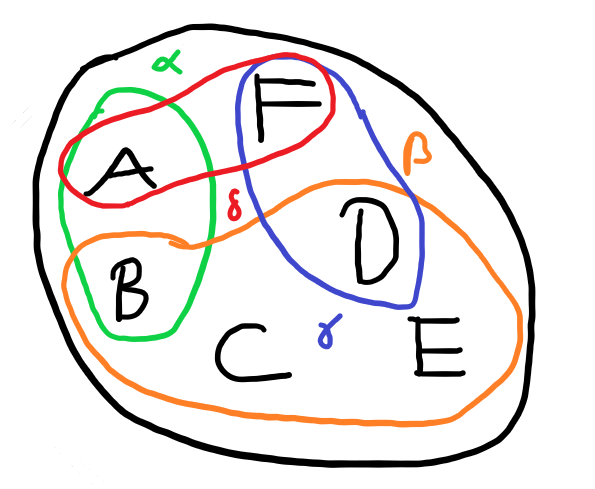 α
F
β
A
δ
D
B
C γ E